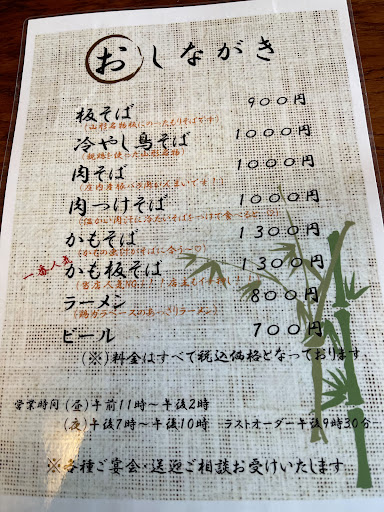 おしながき
板そば 900円
(山形名物板にのったもりそばです)
冷やし鳥そば 1000円
(親鶏を使った山形名物)
肉そば 1000円
肉つけそば 1000円
(温かい肉そばに冷たいそばをつけて食べると…♡)
かもそば 1300円
一番人気 かも板そば 1300円
ラーメン 800円
(鶏ガラベースのあっさりラーメン)
ビール 700円
(※)料金はすべて税込価格となっております
営業時間 (昼)午前11時〜午後2時
(夜)午後7時〜午後10時 ラストオーダー午後9時30分
※各種ご宴会・送迎ご相談お受けいたします